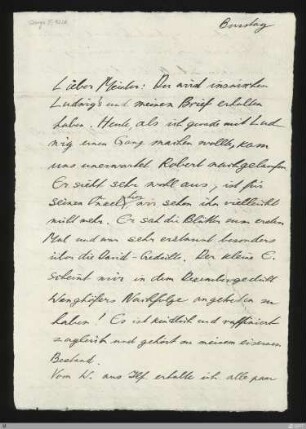 Lieber Meister: Du wirst inzwischen
Ludwig's und meinen Brief erhalten
haben. Heute, als ich gerade mit Lud-
wig einen Gang machen wollte, kam
uns unerwartet Robert nachgelaufen.
Er sieht sehr wohl aus, ist für
seinen wir sehen ihn vielleicht
nicht mehr. Er sah die Blätter zum ersten
Mal und war sehr erstaunt besonders
über die David-Gedichte. Der kleine E.
scheint mir in dem
Nachfolge angetreten zu
haben! Es ist köstlich und raffiniert
zugleich und gehört zu meinem eisernen
Bestand.
Vom W. aus erhalte ich alle paar